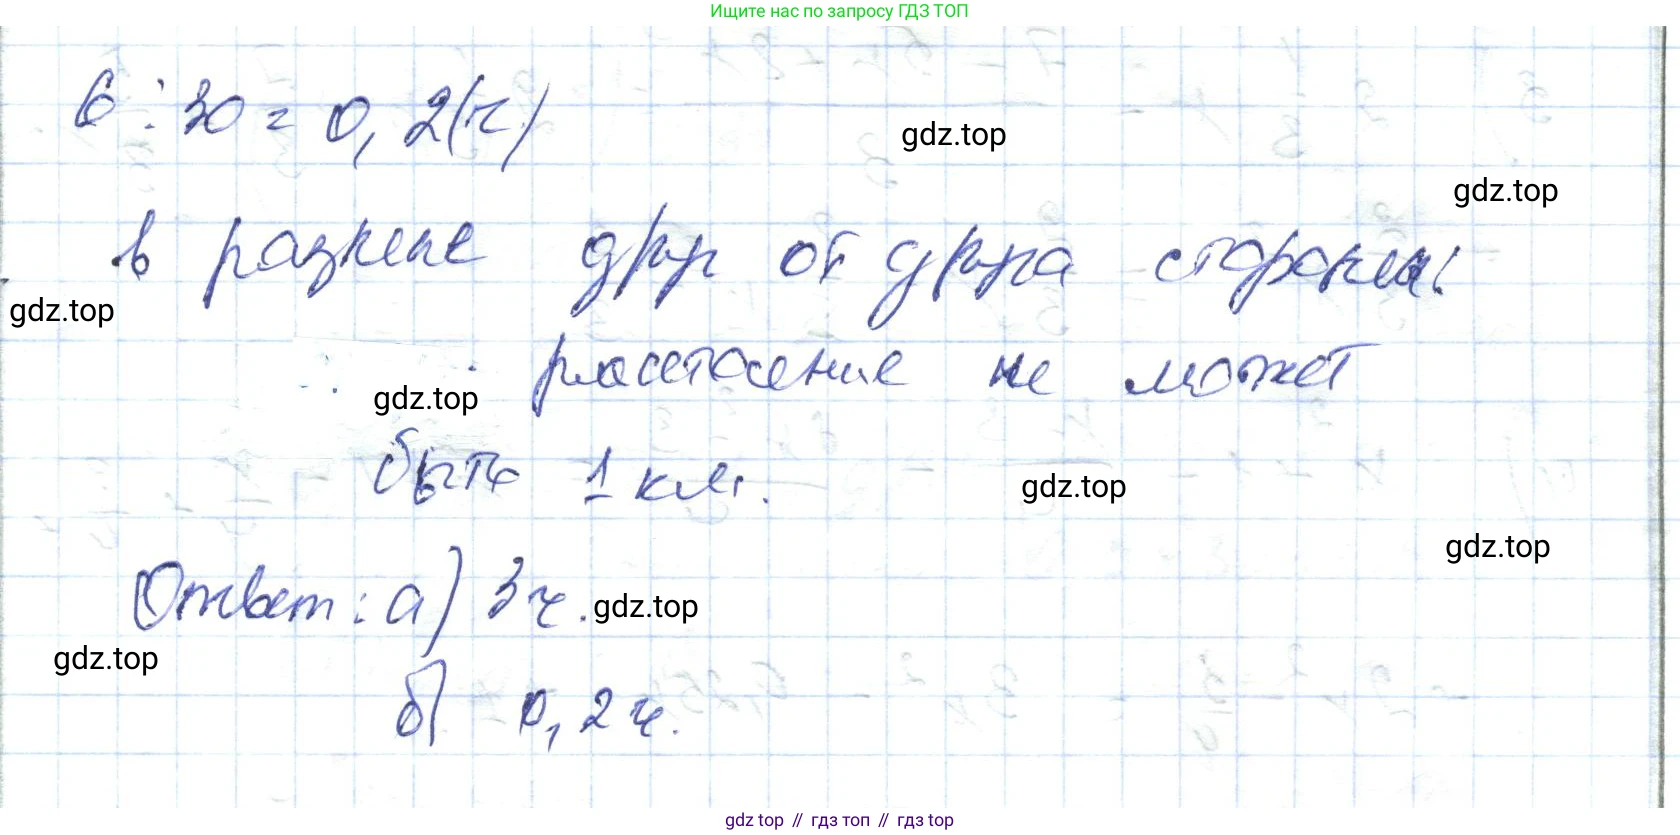 Ищите нас по запросу ГДЗ ТОП
6 : 30 = 0,2(ч)
gdz.top
gdz.top
в разные друг от друга стороны:
gdz.top
расстояние не может
gdz.top
быть 1 км.
gdz.top
gdz.top
Ответ: а) 3 ч.
gdz.top
gdz.top
б) 0,2 ч.
gdz top // гдз топ // гдз top